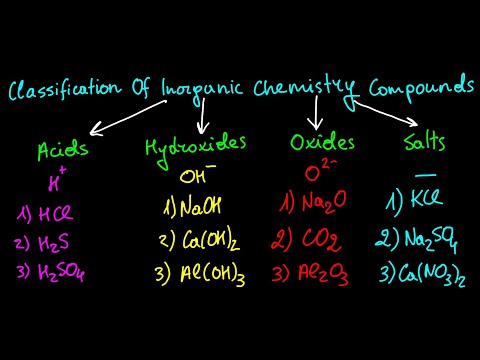 Classification Of Inorganic Chemistry Compounds
Acids
H⁺
1) HCl
2) H₂S
3) H₂SO₄
Hydroxides
OH⁻
1) NaOH
2) Ca(OH)₂
3) Al(OH)₃
Oxides
O²⁻
1) Na₂O
2) CO₂
3) Al₂O₃
Salts
—
1) KCl
2) Na₂SO₄
3) Ca(NO₃)₂